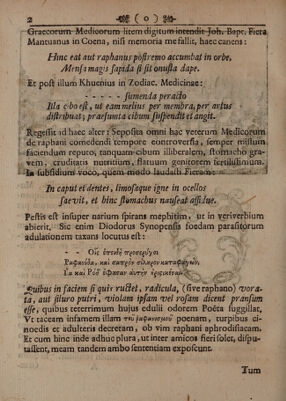 2 ( o )
Graecorum Medicorum litem digitum intendit Joh. Bapt. Fiera
Mantuanus in Coena, nisi memoria me fallit, haec canens:
Hinc eat aut raphanus postremo accumbat in orbe,
Mensa magis sapida si sit onusta dape.
Et post illum Khuenius in Zodiac. Medicinae:
- - - - - sumenda peracto
Illa cibo est, ut eam melius per membra, per artus
distribuat; praesumta cibum suspendit et angit.
Regessit ad haec alter: Seposita omni hac veterum Medicorum
de raphani comedendi tempore controversia, semper missum
faciendum reputo, tanquam cibum illiberalem, stomacho gra-
vem, cruditatis nutritium, flatuum genitorem fertilissimum.
In subsidium voco, quem modo laudasti Fieram:
In caput et dentes, limosaque igne in ocellos
saevit, et hinc stomachus nauseat assidue.
Pestis est insuper narium spirans mephitim, ut in veriverbium
abierit. Sic enim Diodorus Synopensis foedam parasitorum
adulationem taxans locutus est:
Quibus in faciem si quis ructet, radicula, (sive raphano) vora-
ta, aut siluro putri, violam ipsam vel rosam dicent pransum
esse, quibus teterrimum hujus edulii odorem Poëta suggillat.
Ut taceam infamem illam poenam, turpibus ci-
noedis et adulteris decretam, ob vim raphani aphrodisiacam.
Et cum hinc inde adhuc plura, ut inter amicos fieri solet, dispu-
tassent, meam tandem ambo sententiam exposcunt.
Tum